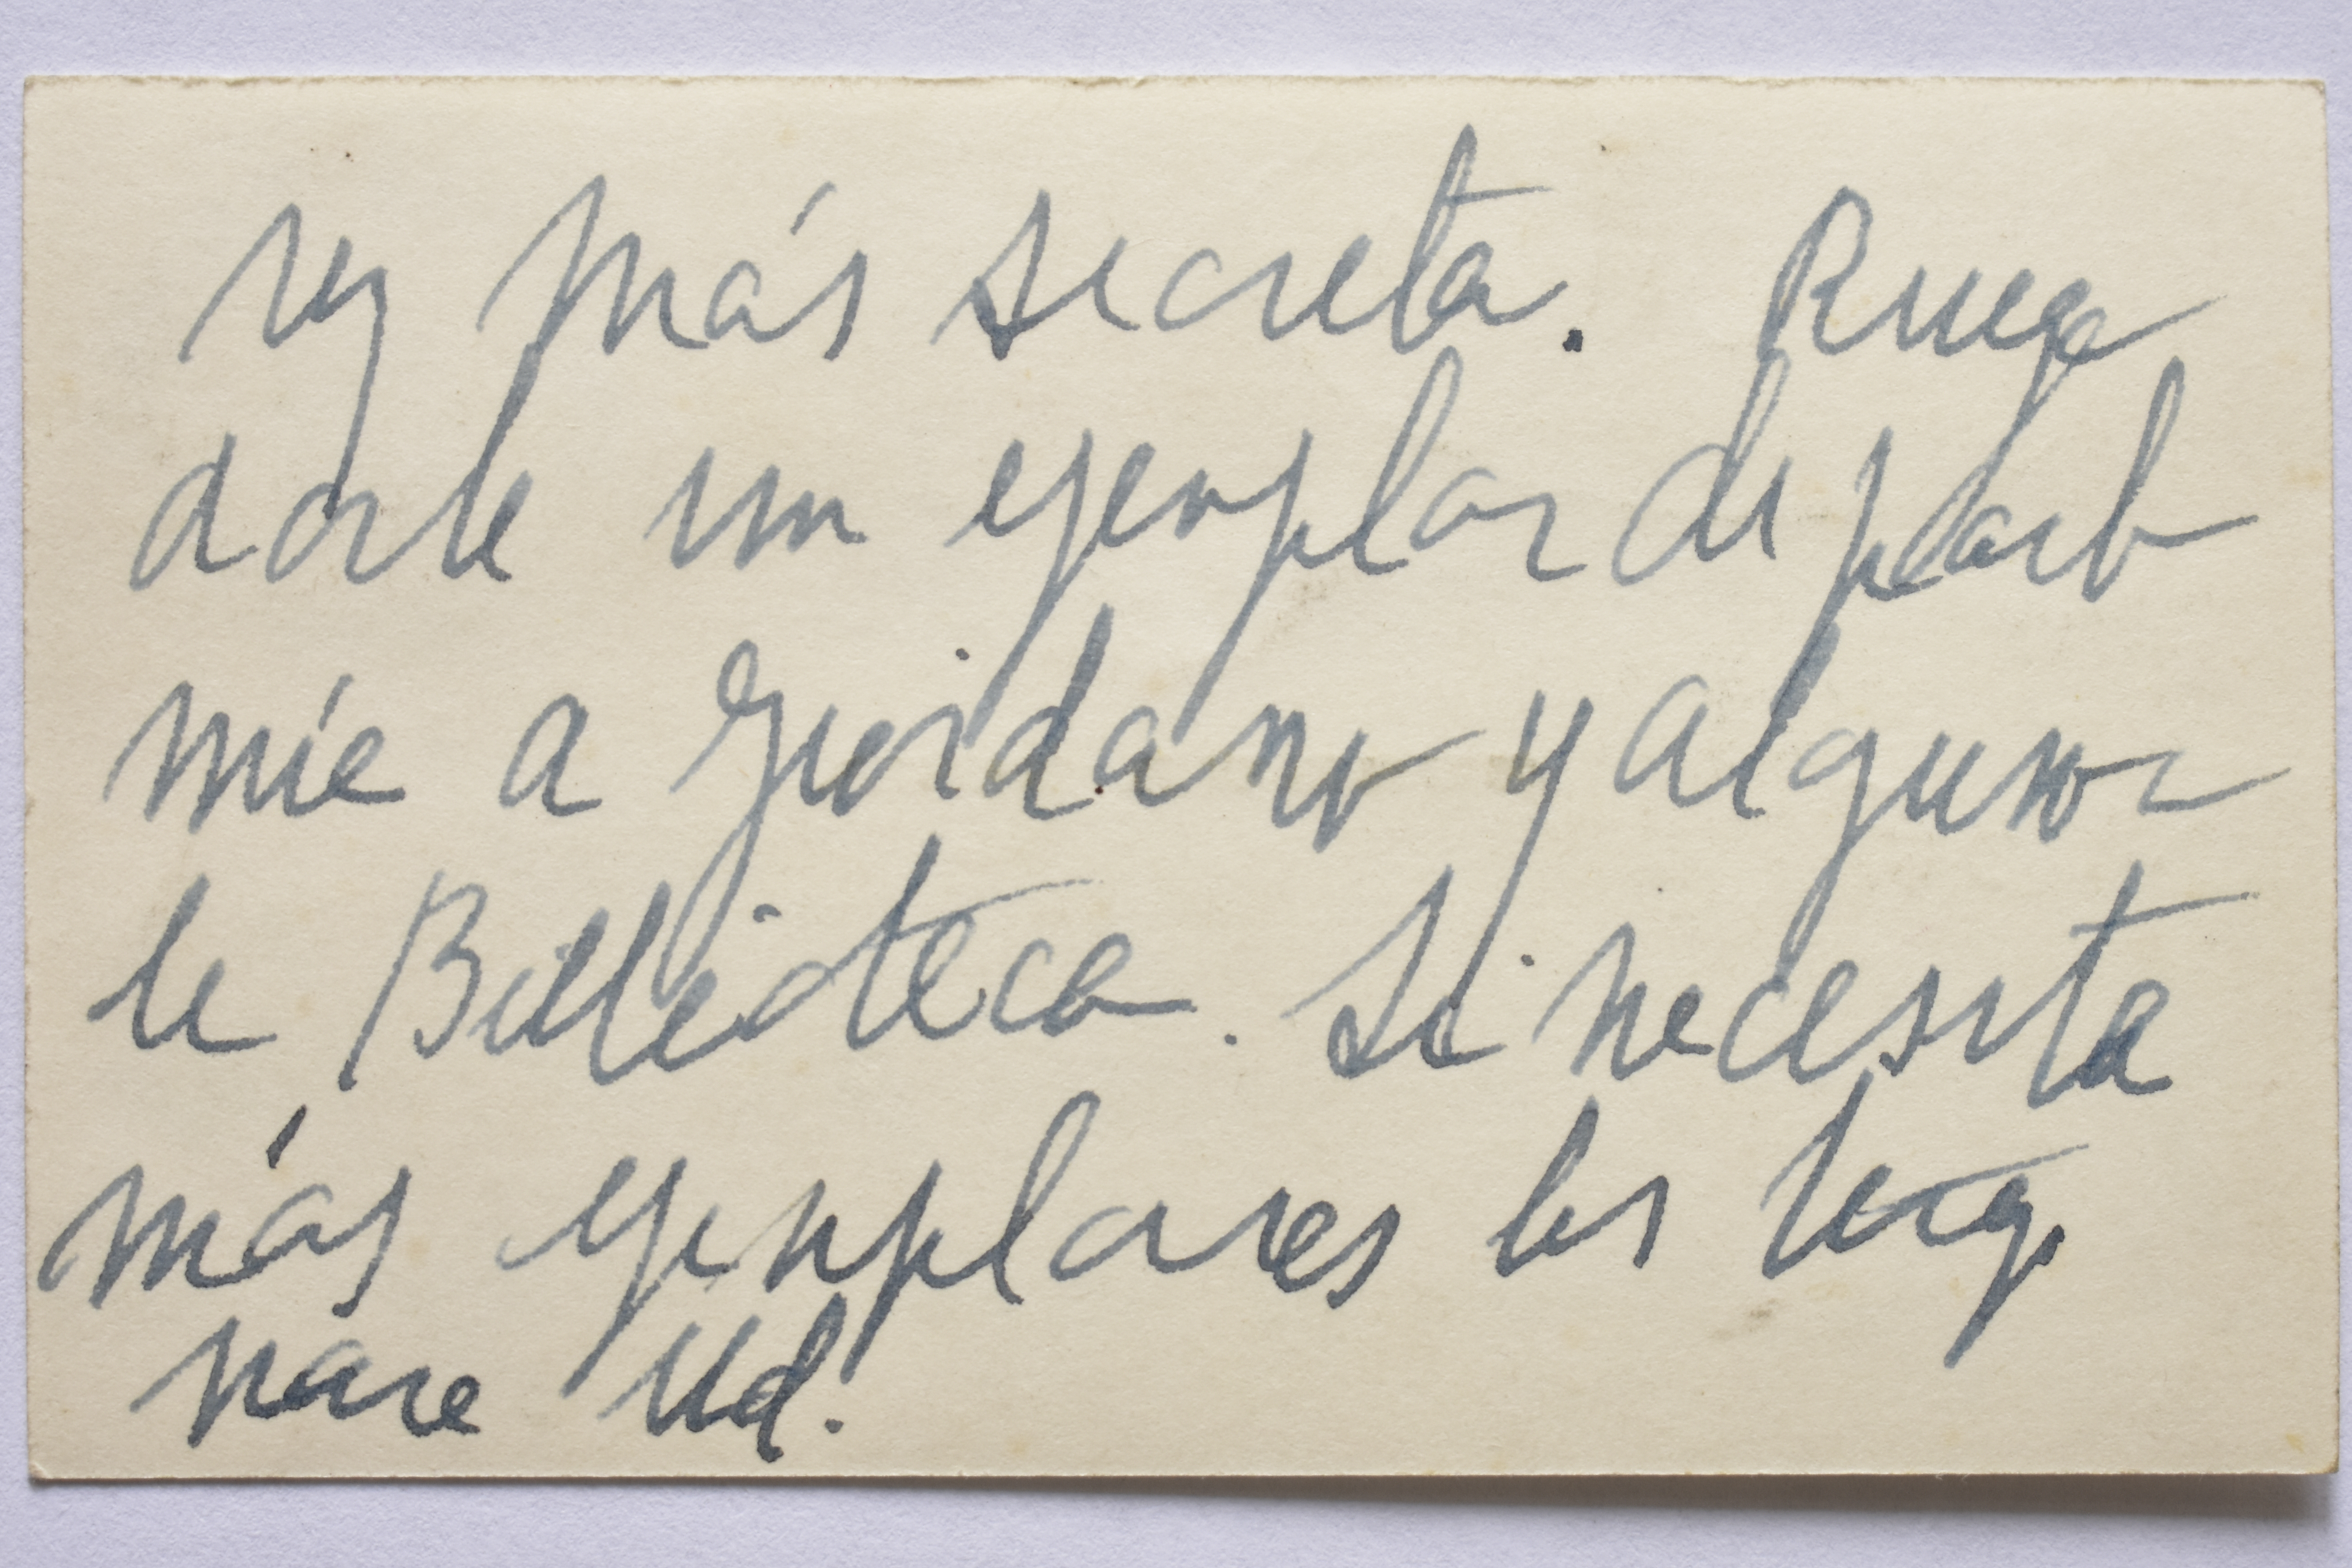 vez más secreta. Ruego
darle un ejemplar de parte
mía a Giordano y alguno a
la Biblioteca. Si necesita
más ejemplares los tengo
para Ud.